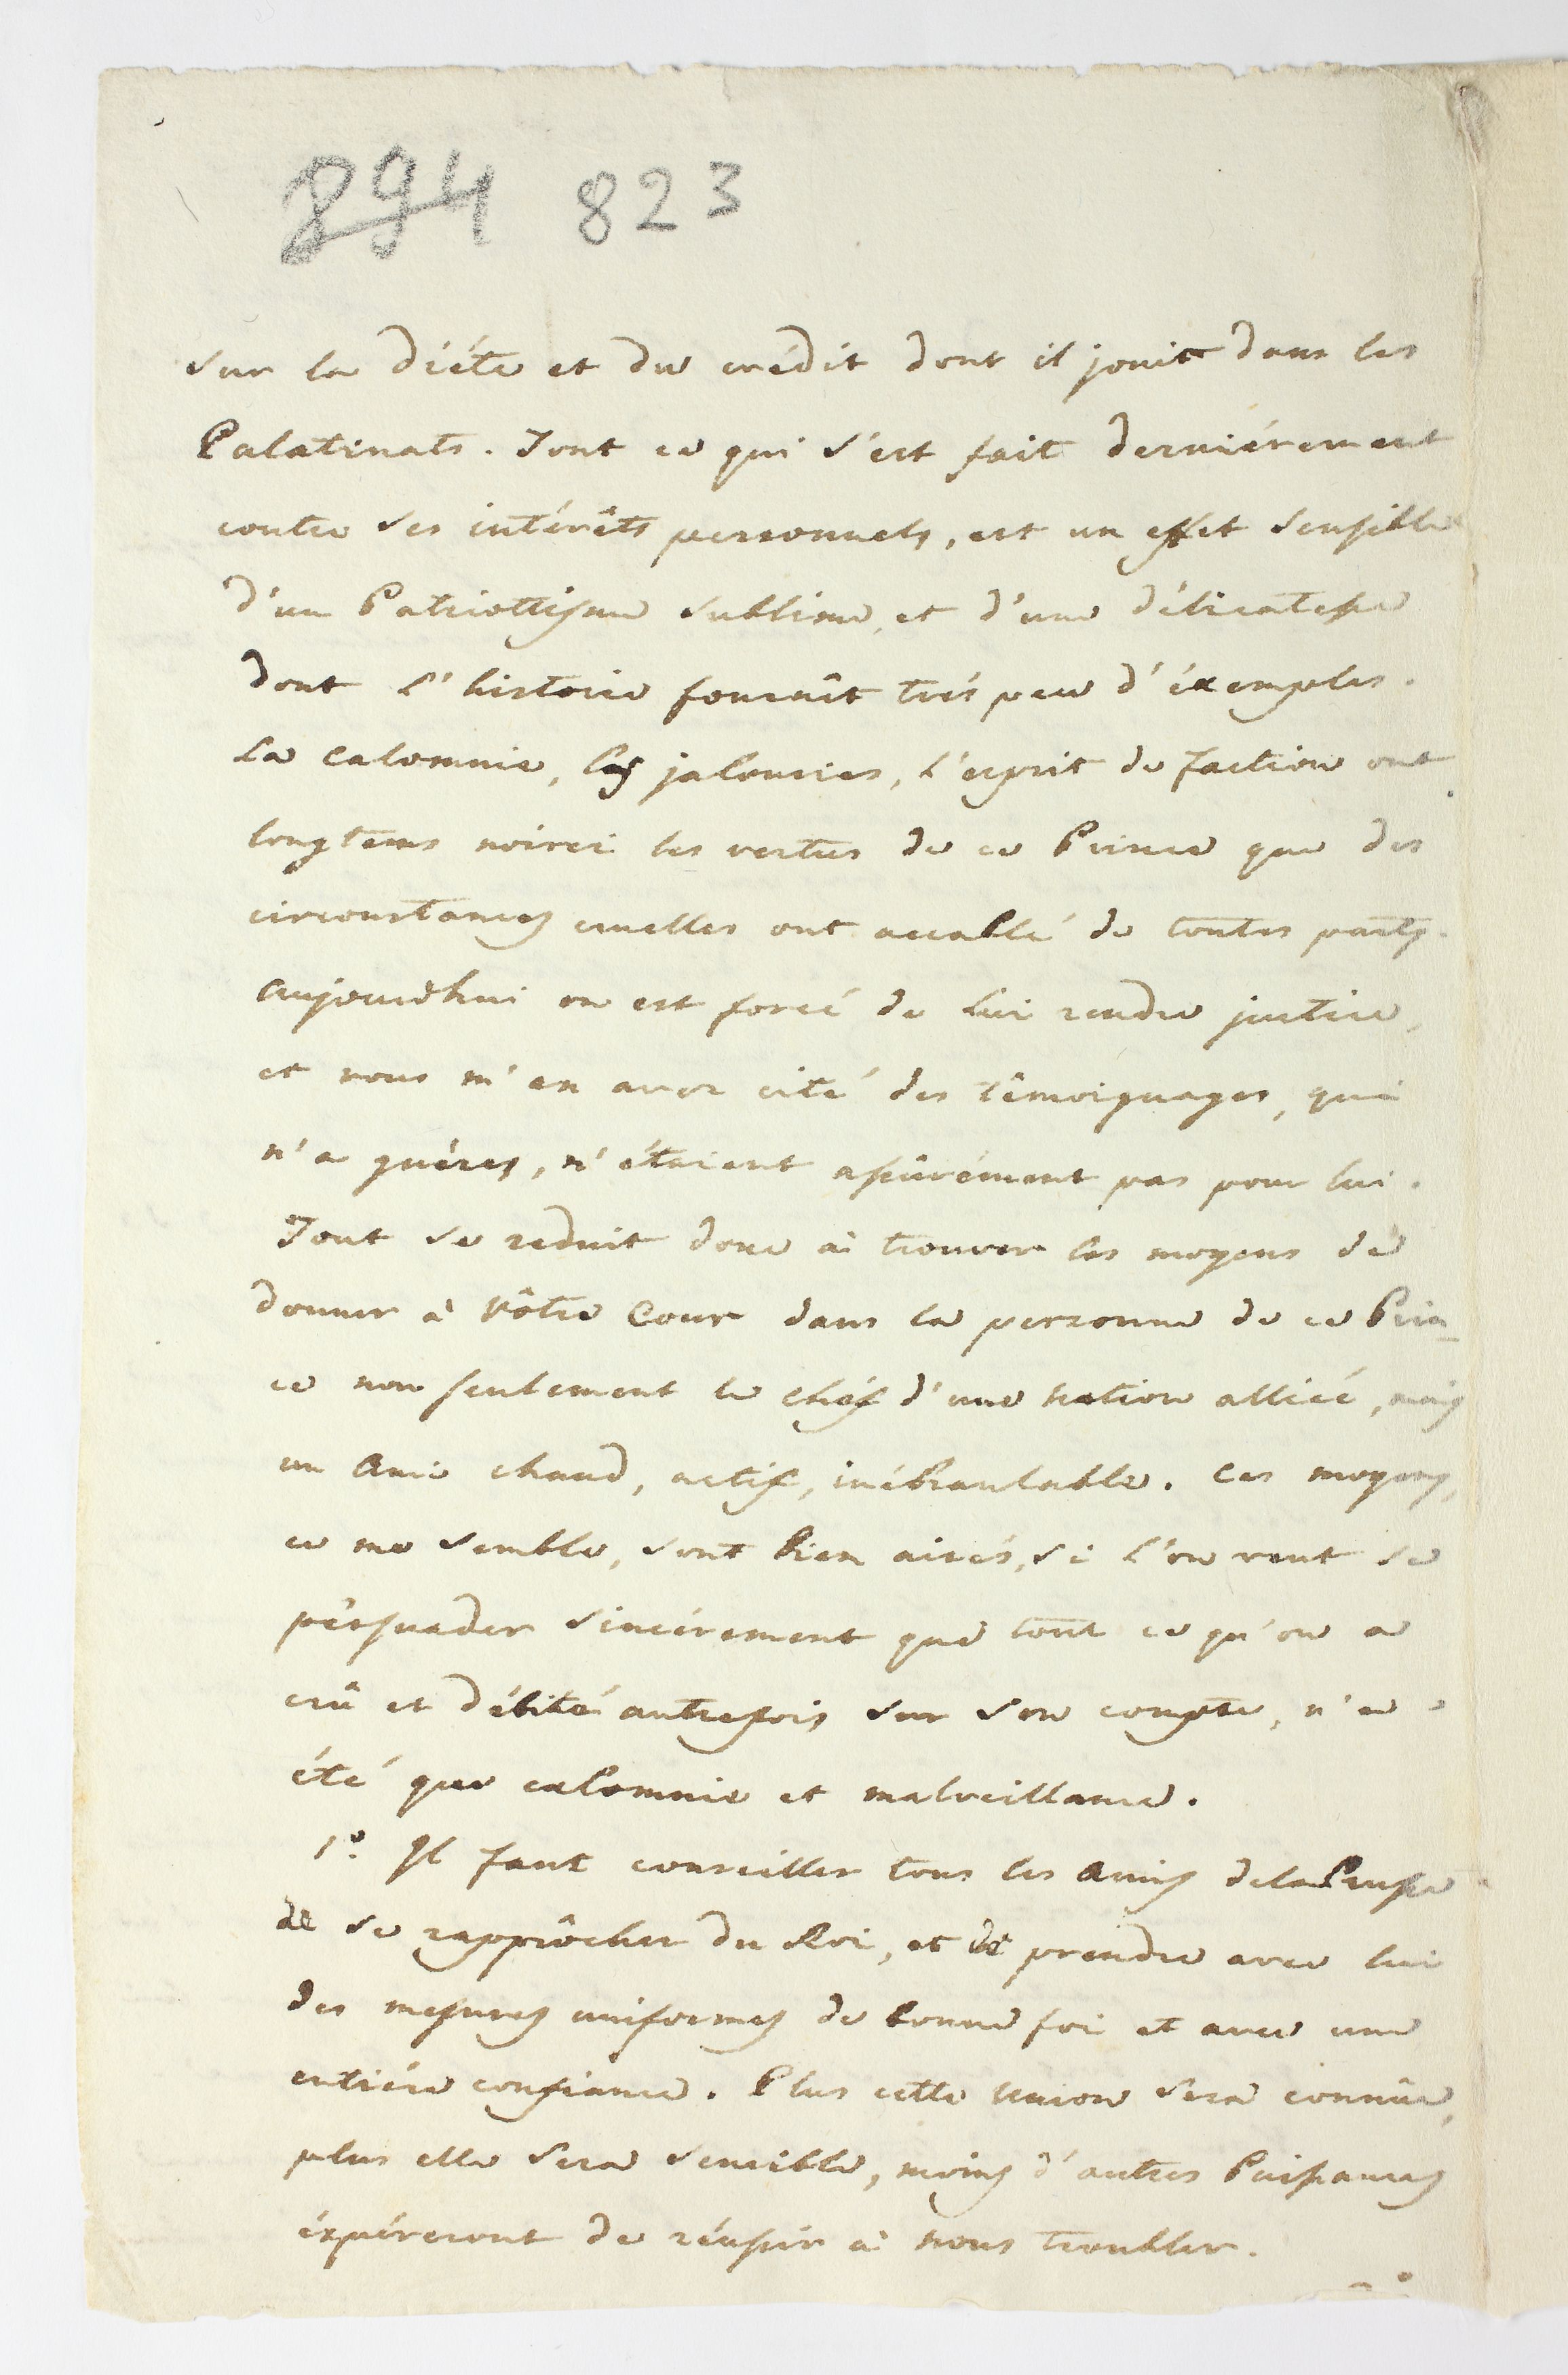 894 823
sur la diéte et du crédit dont il jouit dans les
Palatinats. Tout ce qui s'est fait derniérement
contre ses intérêts personnels, est un effet sensible
d'un Patriottisme sublime, et d'une délicatesse
dont l'histoire fournît trés peu d'éxemples.
La Calomnie, les jalousies, l'esprit de faction ont
longtems noirci les vertus de ce Prince que des
circonstances cruelles ont accablé de toutes parts.
Aujourdhui on est forcé de lui rendre justice,
et vous m'en avez cité des témoignages, qui
n'a guéres, n'étaient assûrément pas pour lui.
Tout se reduit donc à trouver les moyens de
donner à Vôtre Cour dans la personne de ce Prin_
ce non seulement le chéf d'une nation alliée, mais
un Ami chaud, actif, inébranlable. Ces moyens,
ce me semble, sont bien aisés, si l'on veut se
persuader sincérement que tout ce qu'on a
crû et débité autrefois sur son compte, n'a
été que calomnie et malveillance.
1º. Il faut conseiller tous les Amis de la Prusse
de se rapprôcher du Roi, et de prendre avec lui
des mesures uniformes de bonne foi et avec une
entiére confiance. Plus cette union sera connûe,
plus elle sera sensible, moins d'autres Puissances
éspéreront de réussir à nous troubler.